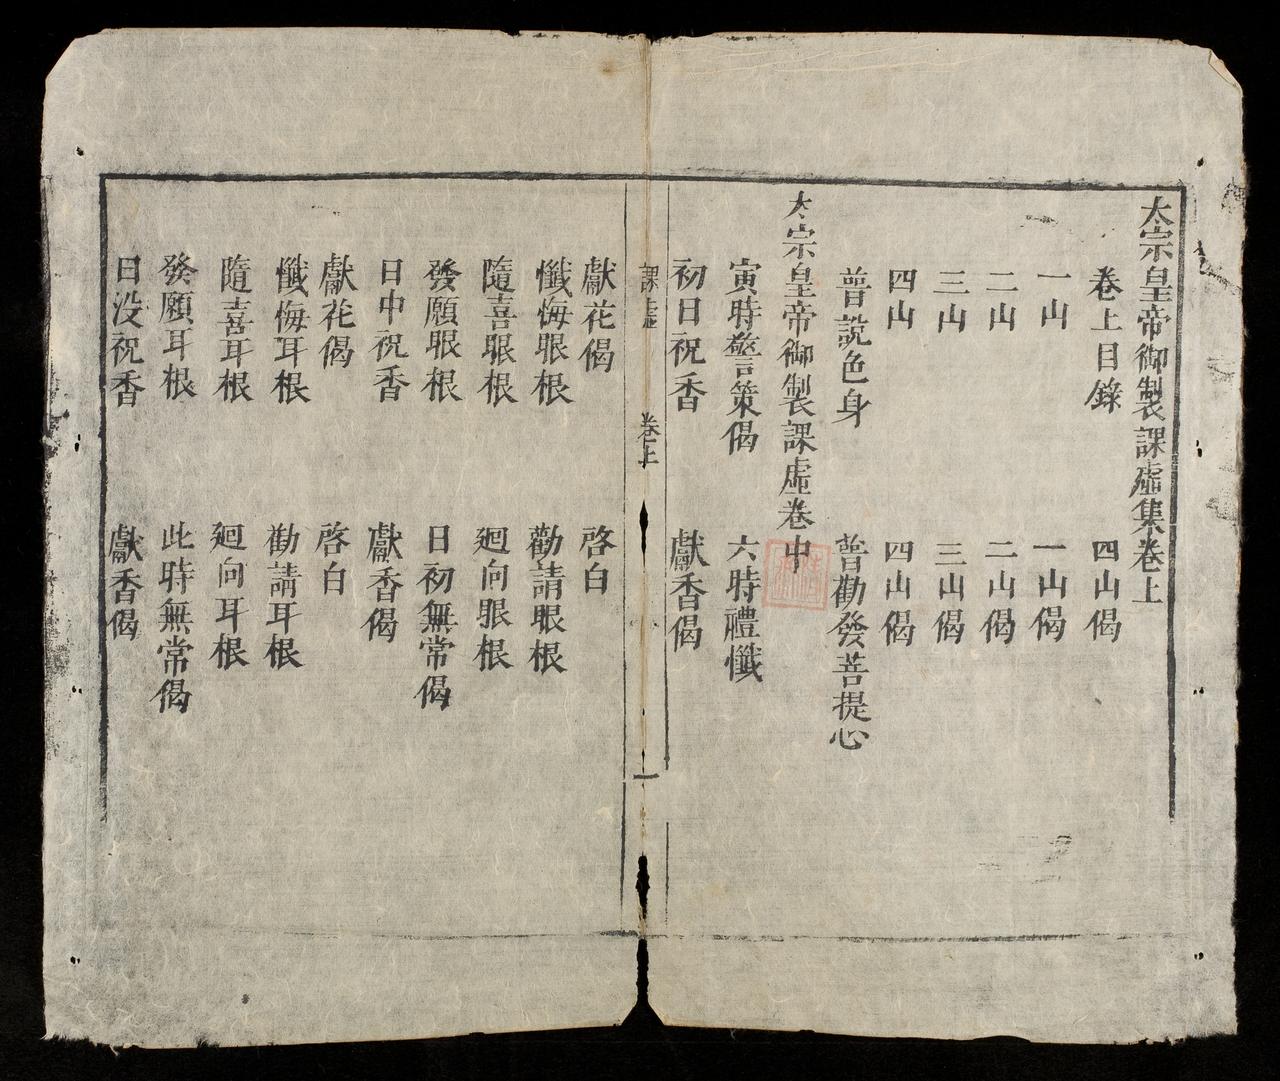 太宗皇帝御製課虛集卷上
卷上目錄 四山偈
一山 一山偈
二山 二山偈
三山 三山偈
四山 四山偈
普說色身 普勸發菩提心
太宗皇帝御製課虛卷中
寅時警策偈 六時禮懺
初日祝香 獻香偈
課虛 卷上 一
獻花偈 啓白
懺悔眼根 勸請眼根
隨喜眼根 廻向眼根
發願眼根 日初無常偈
日中祝香 獻香偈
獻花偈 啓白
懺悔耳根 勸請耳根
隨喜耳根 廻向耳根
發願耳根 此時無常偈
日没祝香 獻香偈